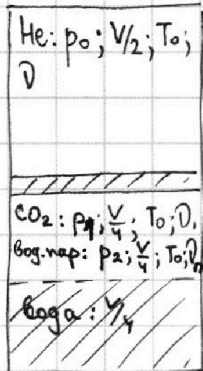 He: p₀; V/2; T₀;
ν
CO₂: p₁; V/4; T₀; ν.
вод.пар: p₂; V/4; T₀; νₙ
вода: V/4